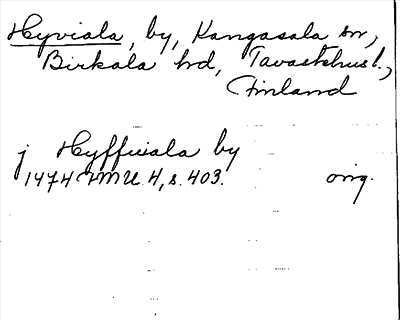 Hyviala, by, Kangasala sn,
Birkala hd, Tavastehus l.,
Finland
j Hyffuiala by
1474 FMU 4, s. 403. orig.